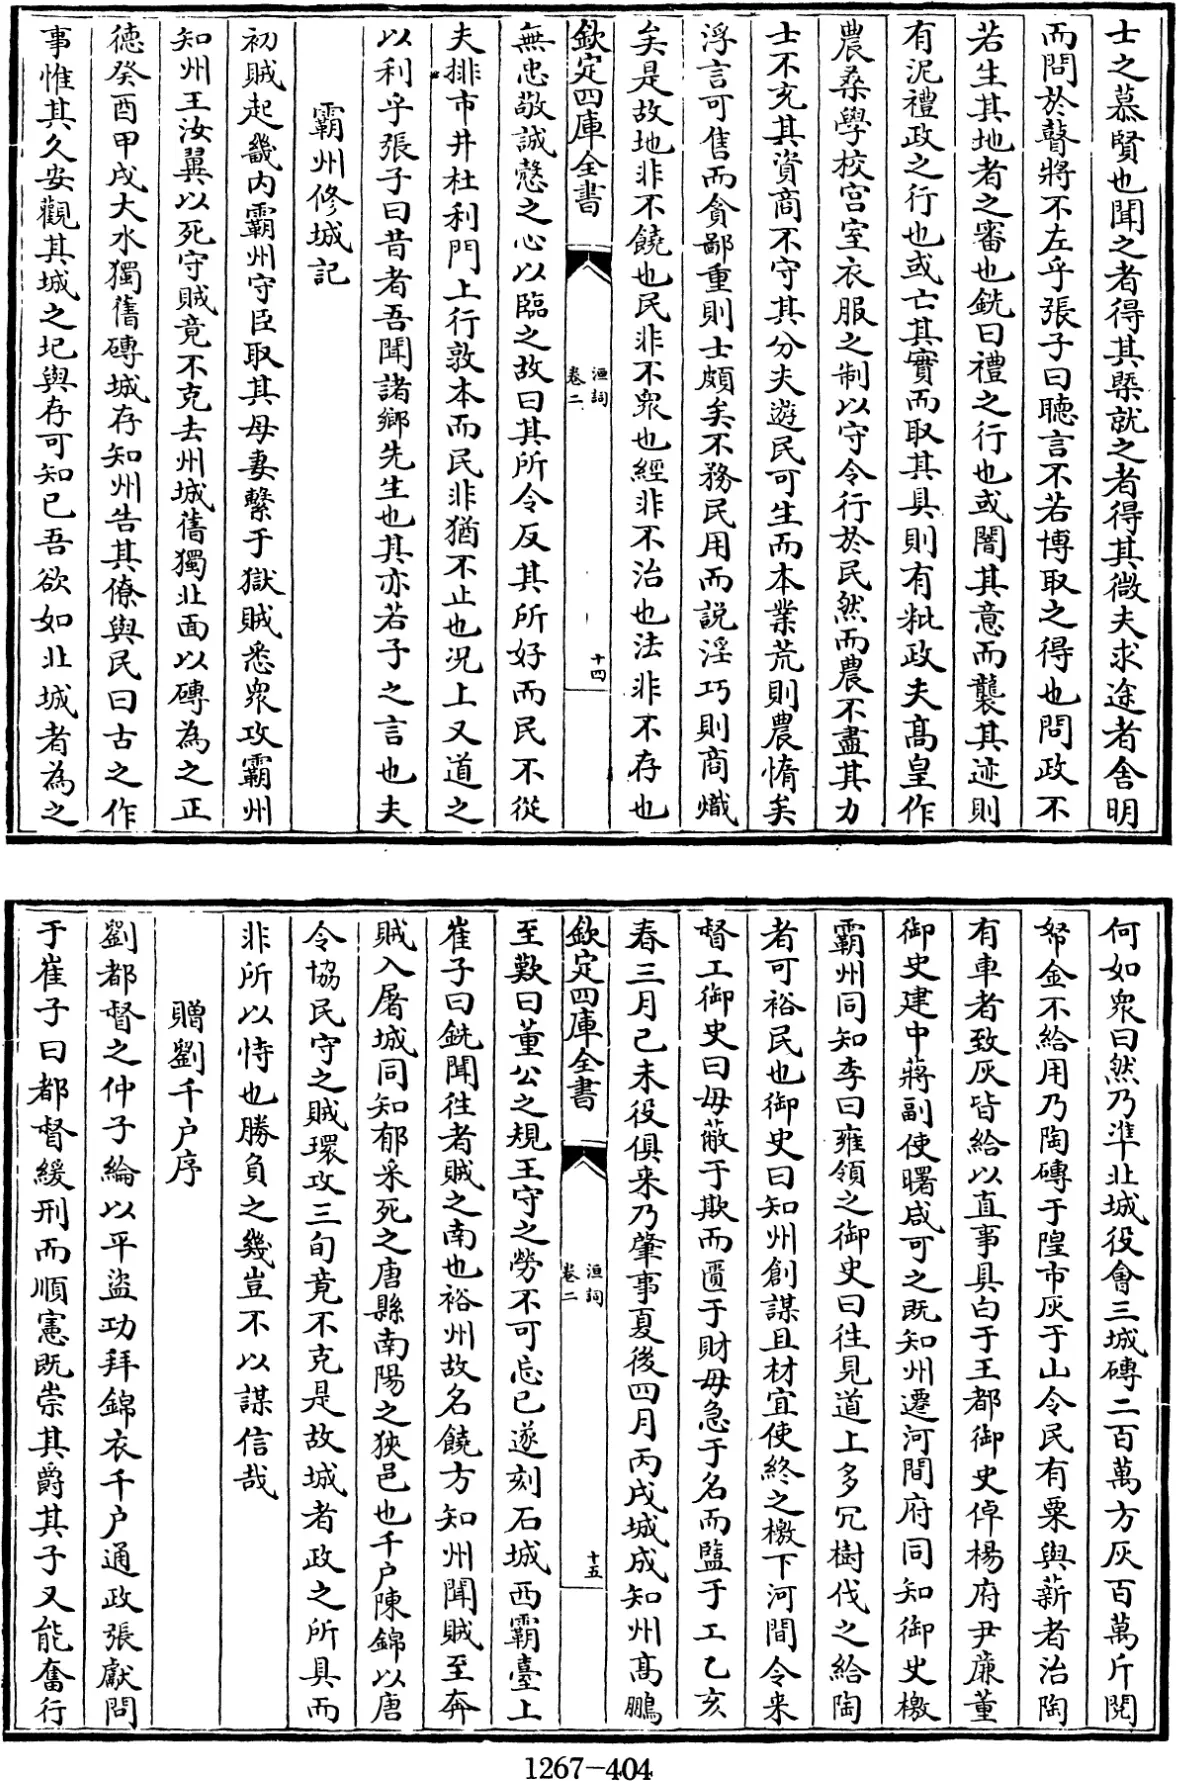 士之慕賢也聞之者得其槩就之者得其微夫求途者舍明
而問於瞽將不左乎張子曰聽言不若博取之得也問政不
若生其地者之審也銑曰禮之行也或闇其意而襲其迹則
有泥禮政之行也或亡其實而取其具則有粃政夫髙皇作
農桑學校宫室衣服之制以守令行於民然而農不盡其力
士不充其資商不守其分夫遊民可生而本業荒則農惰矣
浮言可售而貪鄙重則士頗矣不務民用而説淫巧則商熾
矣是故地非不饒也民非不衆也經非不治也法非不存也
欽定四庫全書
洹詞
卷二
十四
無忠敬誠慤之心以臨之故曰其所令反其所好而民不從
夫排市井杜利門上行敦本而民非猶不止也況上又道之
以利乎張子曰昔者吾聞諸鄉先生也其亦若子之言也夫
霸州修城記
初賊起畿内霸州守臣取其母妻繫于獄賊悉衆攻霸州
知州王汝翼以死守賊竟不克去州城舊獨北面以磚為之正
德癸酉甲戌大水獨舊磚城存知州告其僚與民曰古之作
事惟其久安觀其城之圮與存可知已吾欲如北城者為之
何如衆曰然乃凖北城役會三城磚二百萬方灰百萬斤閱
帑金不給用乃陶磚于隍市灰于山令民有粟與薪者治陶
有車者致灰皆給以直事具白于王都御史倬楊府尹廉董
御史建中蔣副使曙咸可之既知州遷河間府同知御史檄
霸州同知李曰雍領之御史曰往見道上多冗樹伐之給陶
者可裕民也御史曰知州創謀且材宜使終之檄下河間令来
督工御史曰毋蔽于欺而匱于財毋急于名而盬于工乙亥
春三月己未役俱来乃肇事夏後四月丙戌城成知州髙鵬
欽定四庫全書
洹詞
卷二
十五
至歎曰董公之規王守之勞不可忘已遂刻石城西霸臺上
崔子曰銑聞往者賊之南也裕州故名饒方知州聞賊至奔
賊入屠城同知郁采死之唐縣南陽之狹邑也千户陳錦以唐
令協民守之賊環攻三旬竟不克是故城者政之所具而
非所以恃也勝負之幾豈不以謀信哉
贈劉千户序
劉都督之仲子綸以平盜功拜錦衣千户通政張獻問
于崔子曰都督緩刑而順憲既崇其爵其子又能奮行
1267-404